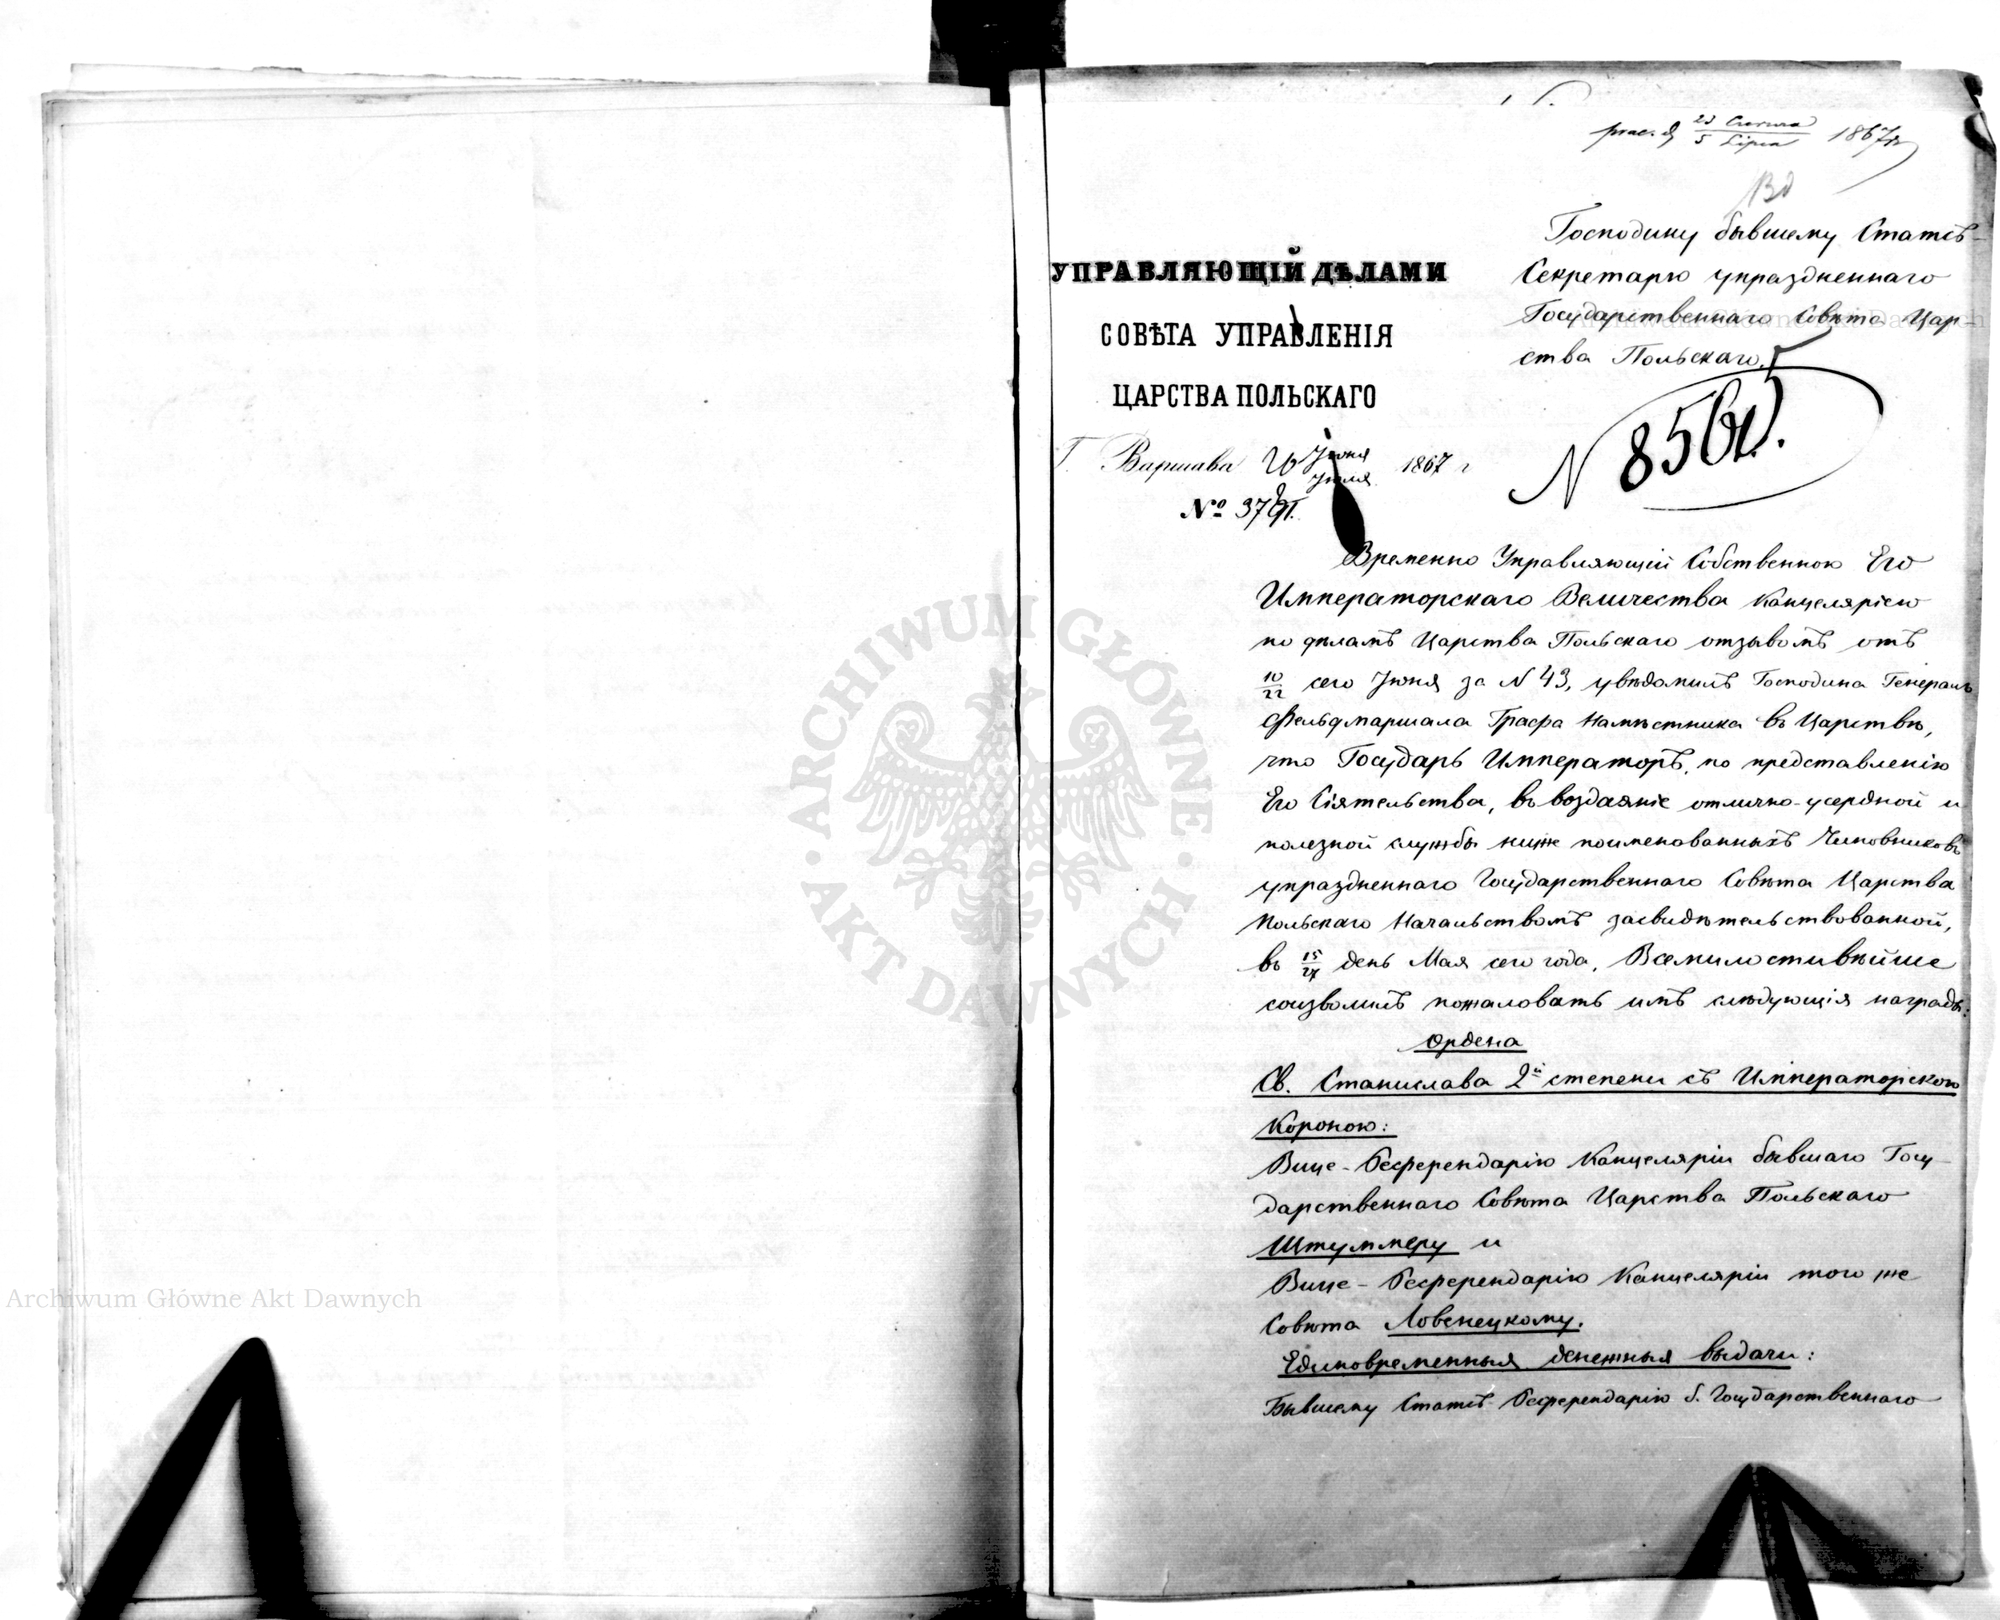 23 Czerwca
5 Lipca 1867 r
Господину бывшему Статсъ-
Секретарю упраздненнаго
Государственнаго Совѣта Цар-
ства Польскаго.
УПРАВЛЯЮЩІЙ ДѢЛАМИ
СОВѢТА УПРАВЛЕНІЯ
ЦАРСТВА ПОЛЬСКАГО
N 856
Г. Варшава Іюня
Іюля 1867 г
№ 37
Временно Управляющій Собственною Его
Императорскаго Величества Канцеляріею
по дѣламъ Царства Польскаго отзывомъ отъ
10/22 сего Іюня за N 43, увѣдомилъ Господина Генералъ
Фельдмаршала Графа Намѣстника въ Царствѣ,
что Государь Императоръ, по представленію
Его Сіятельства, въ воздаяніе отлично-усердной и
полезной службы ниже поименованныхъ Чиновниковъ
упраздненнаго Государственнаго Совѣта Царства
Польскаго Начальствомъ засвидѣтельствованной,
въ 15/27 день Мая сего года, Всемилостивѣйше
соизволилъ пожаловать имъ слѣдующія награды:
Ордена
Св. Станислава 2й степени съ Императорскою
Короною:
Вице-Референдарію Канцеляріи бывшаго Госу-
дарственнаго Совѣта Царства Польскаго
Штуммеру и
Вице-Референдарію Канцеляріи того же
Совѣта Ловенецкому.
Единовременныя денежныя выдачи:
Бывшему Статсъ-Референдарію б. Государственнаго
ARCHIWUM GŁÓWNE · AKT DAWNYCH ·
Archiwum Główne Akt Dawnych